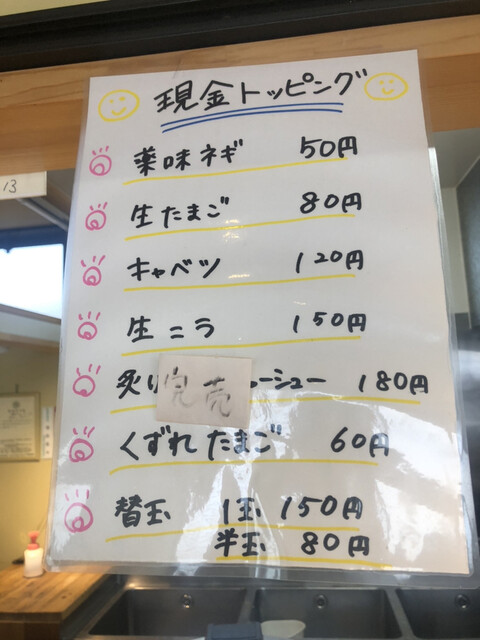 現金トッピング
薬味ネギ 50円
生たまご 80円
キャベツ 120円
生ニラ 150円
炙り 完売 ーシュー 180円
くずれたまご 60円
替玉 1玉 150円
半玉 80円
13